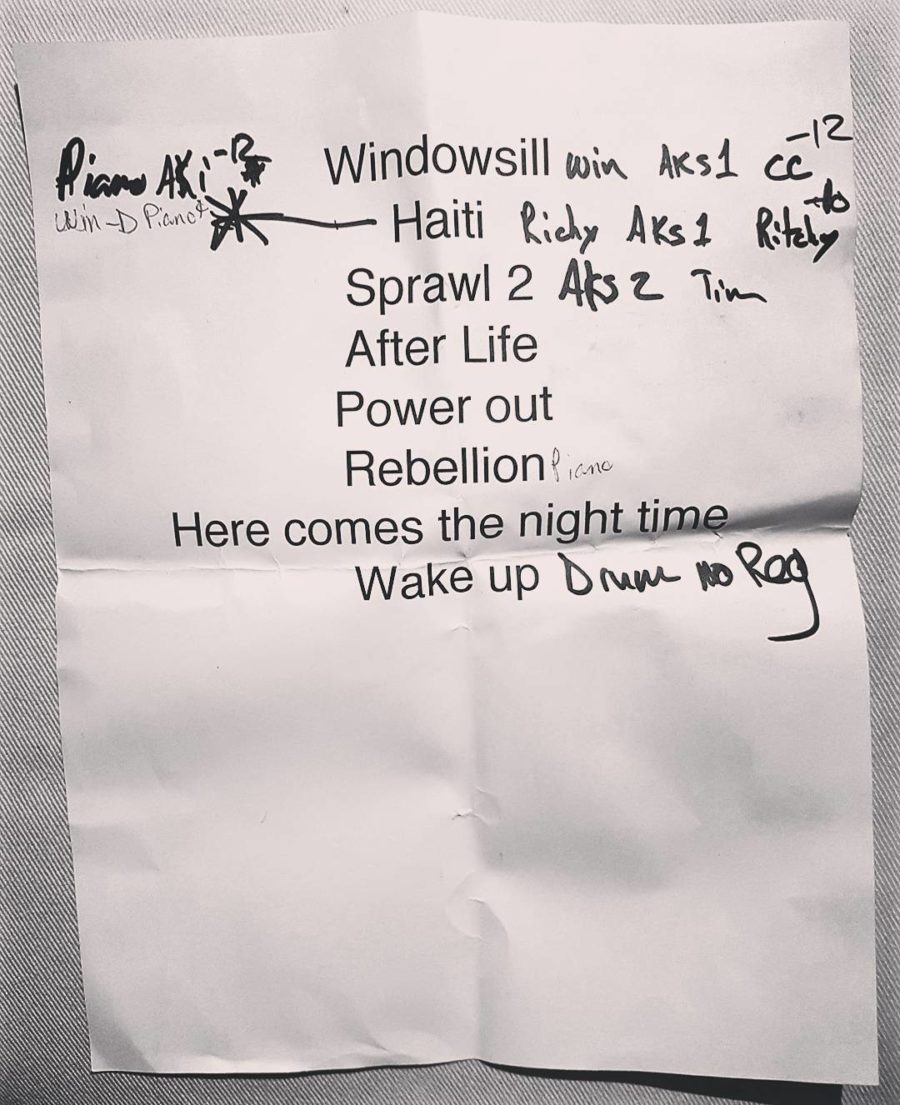 Piano AKi -12
Win → Piano
Windowsill win AKs1 cc -12
Haiti Richy AKs1 Ritchy -10
Sprawl 2 AKs 2 Tim
After Life
Power out
Rebellion Piano
Here comes the night time
Wake up Drum no Reg